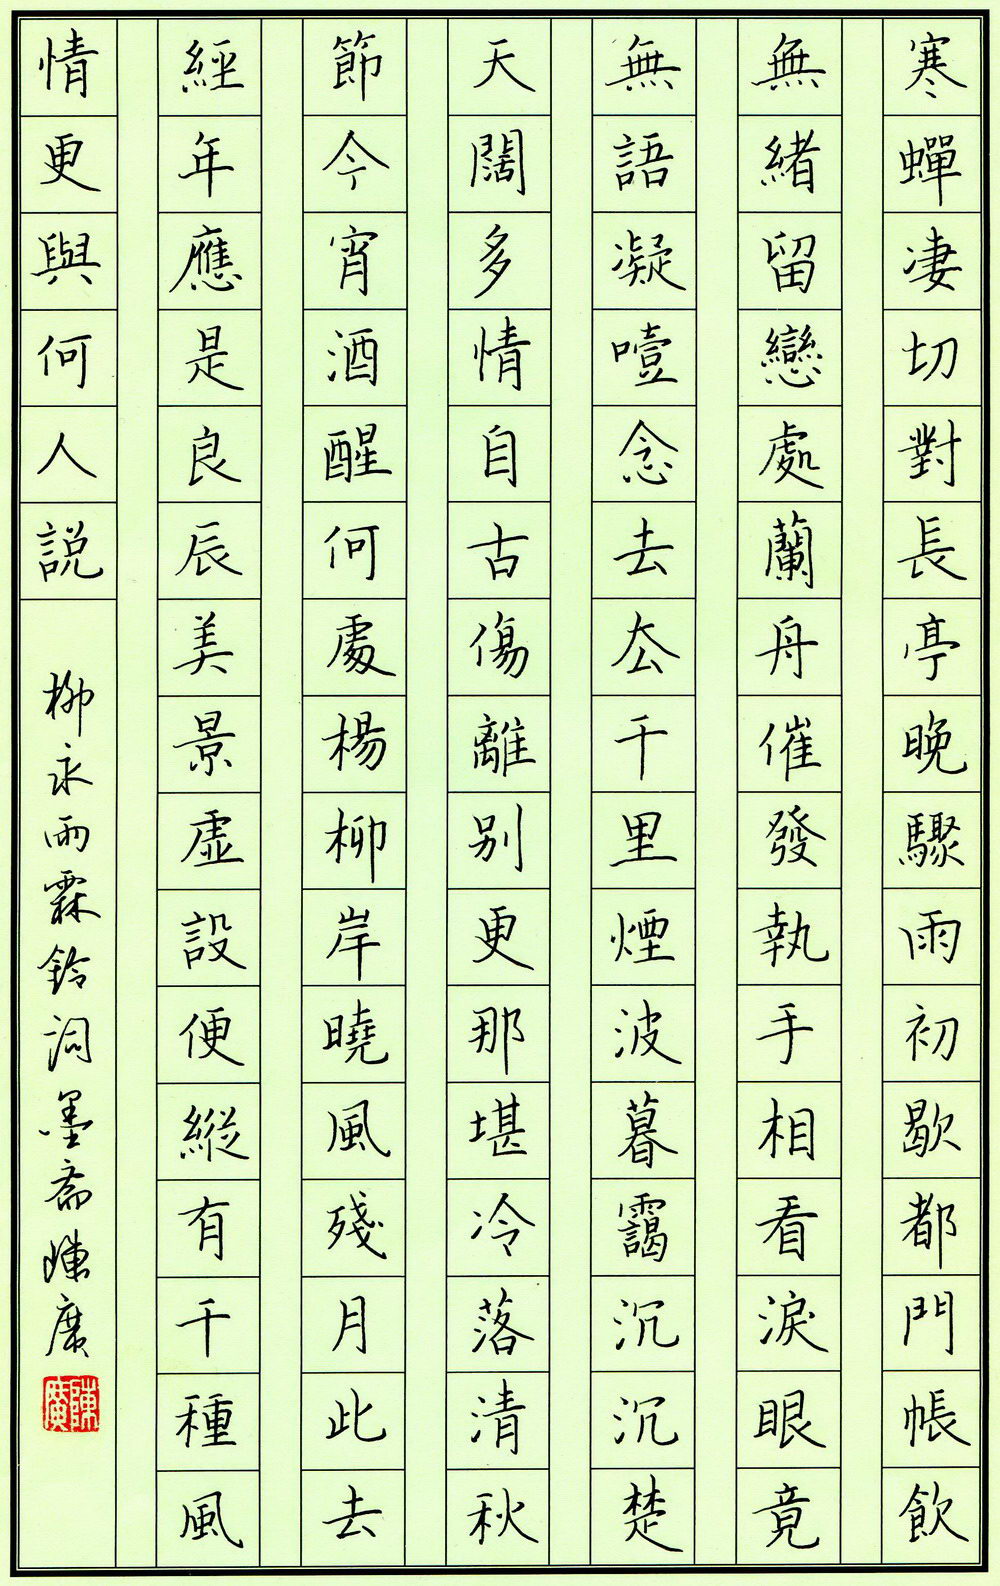 寒蟬凄切對長亭晚驟雨初歇都門帳飲
無緒留戀處蘭舟催發執手相看淚眼竟
無語凝噎念去厺千里煙波暮靄沉沉楚
天闊多情自古傷離别更那堪冷落清秋
節今宵酒醒何處楊柳岸曉風殘月此去
經年應是良辰美景虛設便縱有千種風
情更與何人説
柳永雨霖鈴詞墨斋陳廣
陳廣